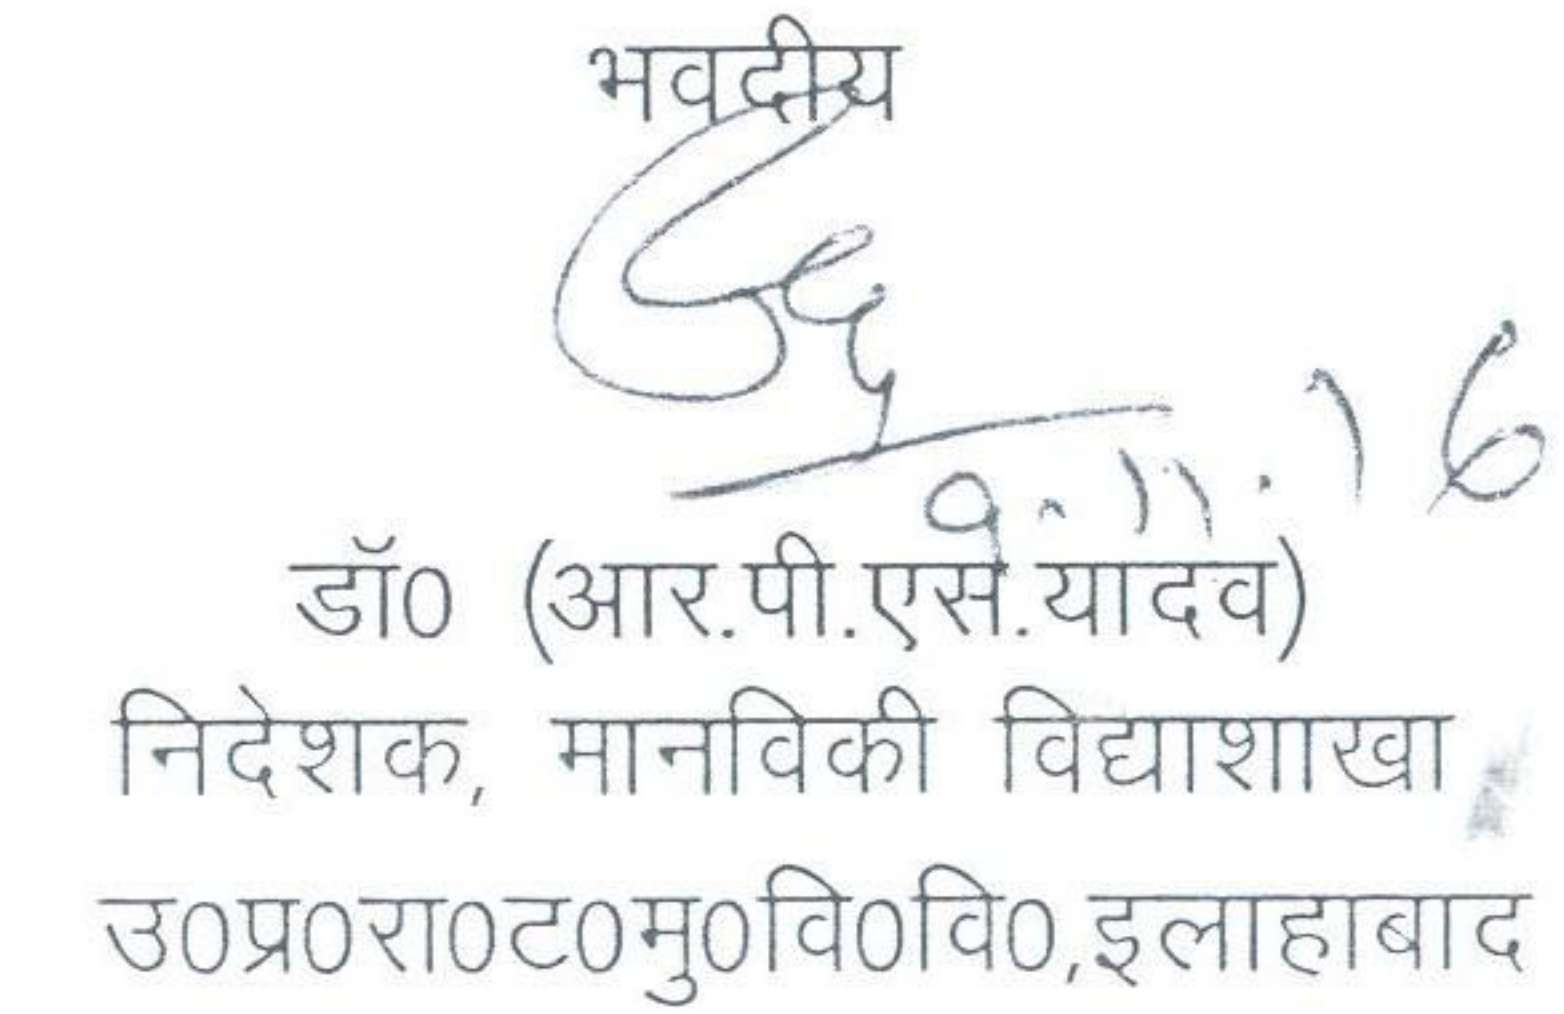 भवदीय
9.11.16
डॉ0 (आर.पी.एस.यादव)
निदेशक, मानविकी विद्याशाखा
उ0प्र0रा0ट0मु0वि0वि0,इलाहाबाद